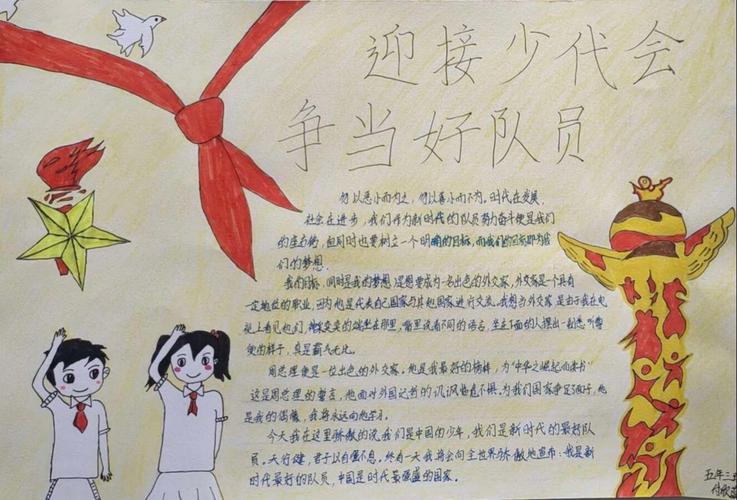 迎接少代会
争当好队员
勿以恶小而为之，勿以善小而不为。时代在发展，
社会在进步，我们作为新时代的队员努力奋斗便是我们
的座右铭，但同时也要树立一个明确的目标，而我们的目标即为我
们的梦想。
我的目标，同时是我的梦想：是想要成为一名出色的外交家，外交家是一个具有
一定地位的职业，因为他是代表自己国家与其他国家进行交流。我想当外交家是由于我在电
视上看见他们，端坐在那里，嘴里说着不同的语言，坐在下面的人摆出一副悉听尊
便的样子，真是霸气无比。
周总理便是一位出色的外交家。他是我最好的榜样，为“中华之崛起而读书”
这是周总理的誓言，他面对外国记者的讥讽临危不惧。为我们国家争足了面子，他
是我的偶像，我将永远向他学习。
今天我在这里骄傲的说，我们是中国的少年，我们是新时代的最好队
员。天行健，君子以自强不息。终有一天我将会向全世界骄傲地宣布：我是新
时代最好的队员，中国是时代最强盛的国家。
五年三
付